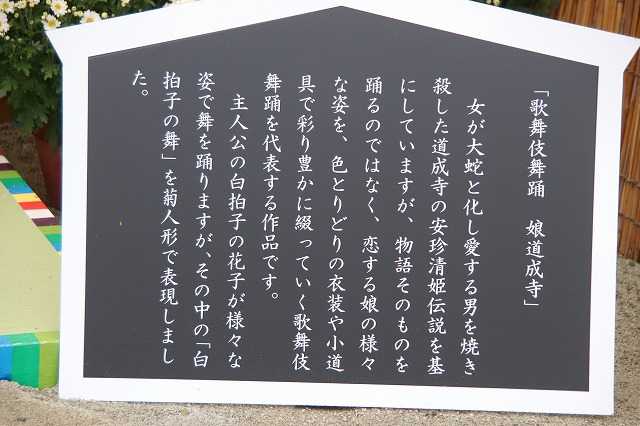 「歌舞伎舞踊　娘道成寺」
女が大蛇と化し愛する男を焼き
殺した道成寺の安珍清姫伝説を基
にしていますが、物語そのものを
踊るのではなく、恋する娘の様々
な姿を、色とりどりの衣装や小道
具で彩り豊かに綴っていく歌舞伎
舞踊を代表する作品です。
主人公の白拍子の花子が様々な
姿で舞を踊りますが、その中の「白
拍子の舞」を菊人形で表現しまし
た。